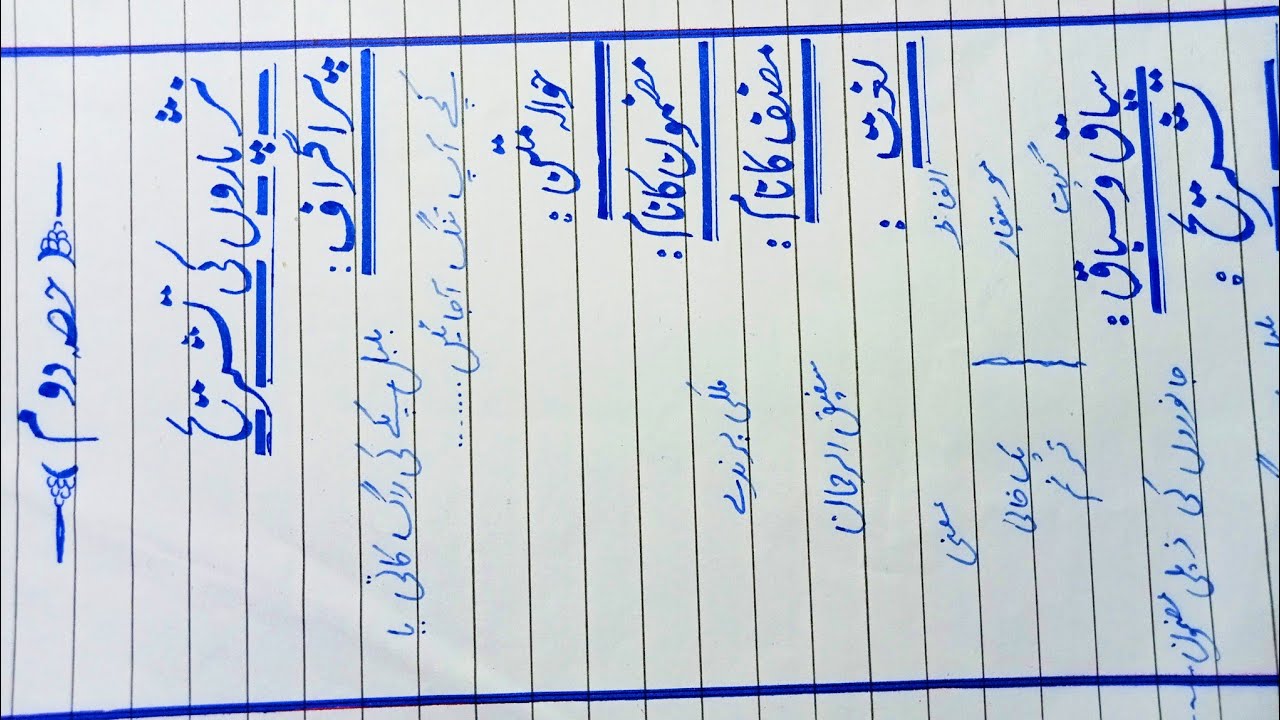 حصہ دوم
نثر پاروں کی تشریح
پیراگراف:
بلبل پکے کی راگ گاتی یا
کچے آپ تنگ آجائیں ........
حوالہ متن:
مضمون کا نام: ملکی پرندے
مصنف کا نام: شفیق الرحمان
لغت:
الفاظ معنی
موسیقار
گیت ترنم
سیاق و سباق:
جانوروں کی ذیلی مضمون
تشریح: